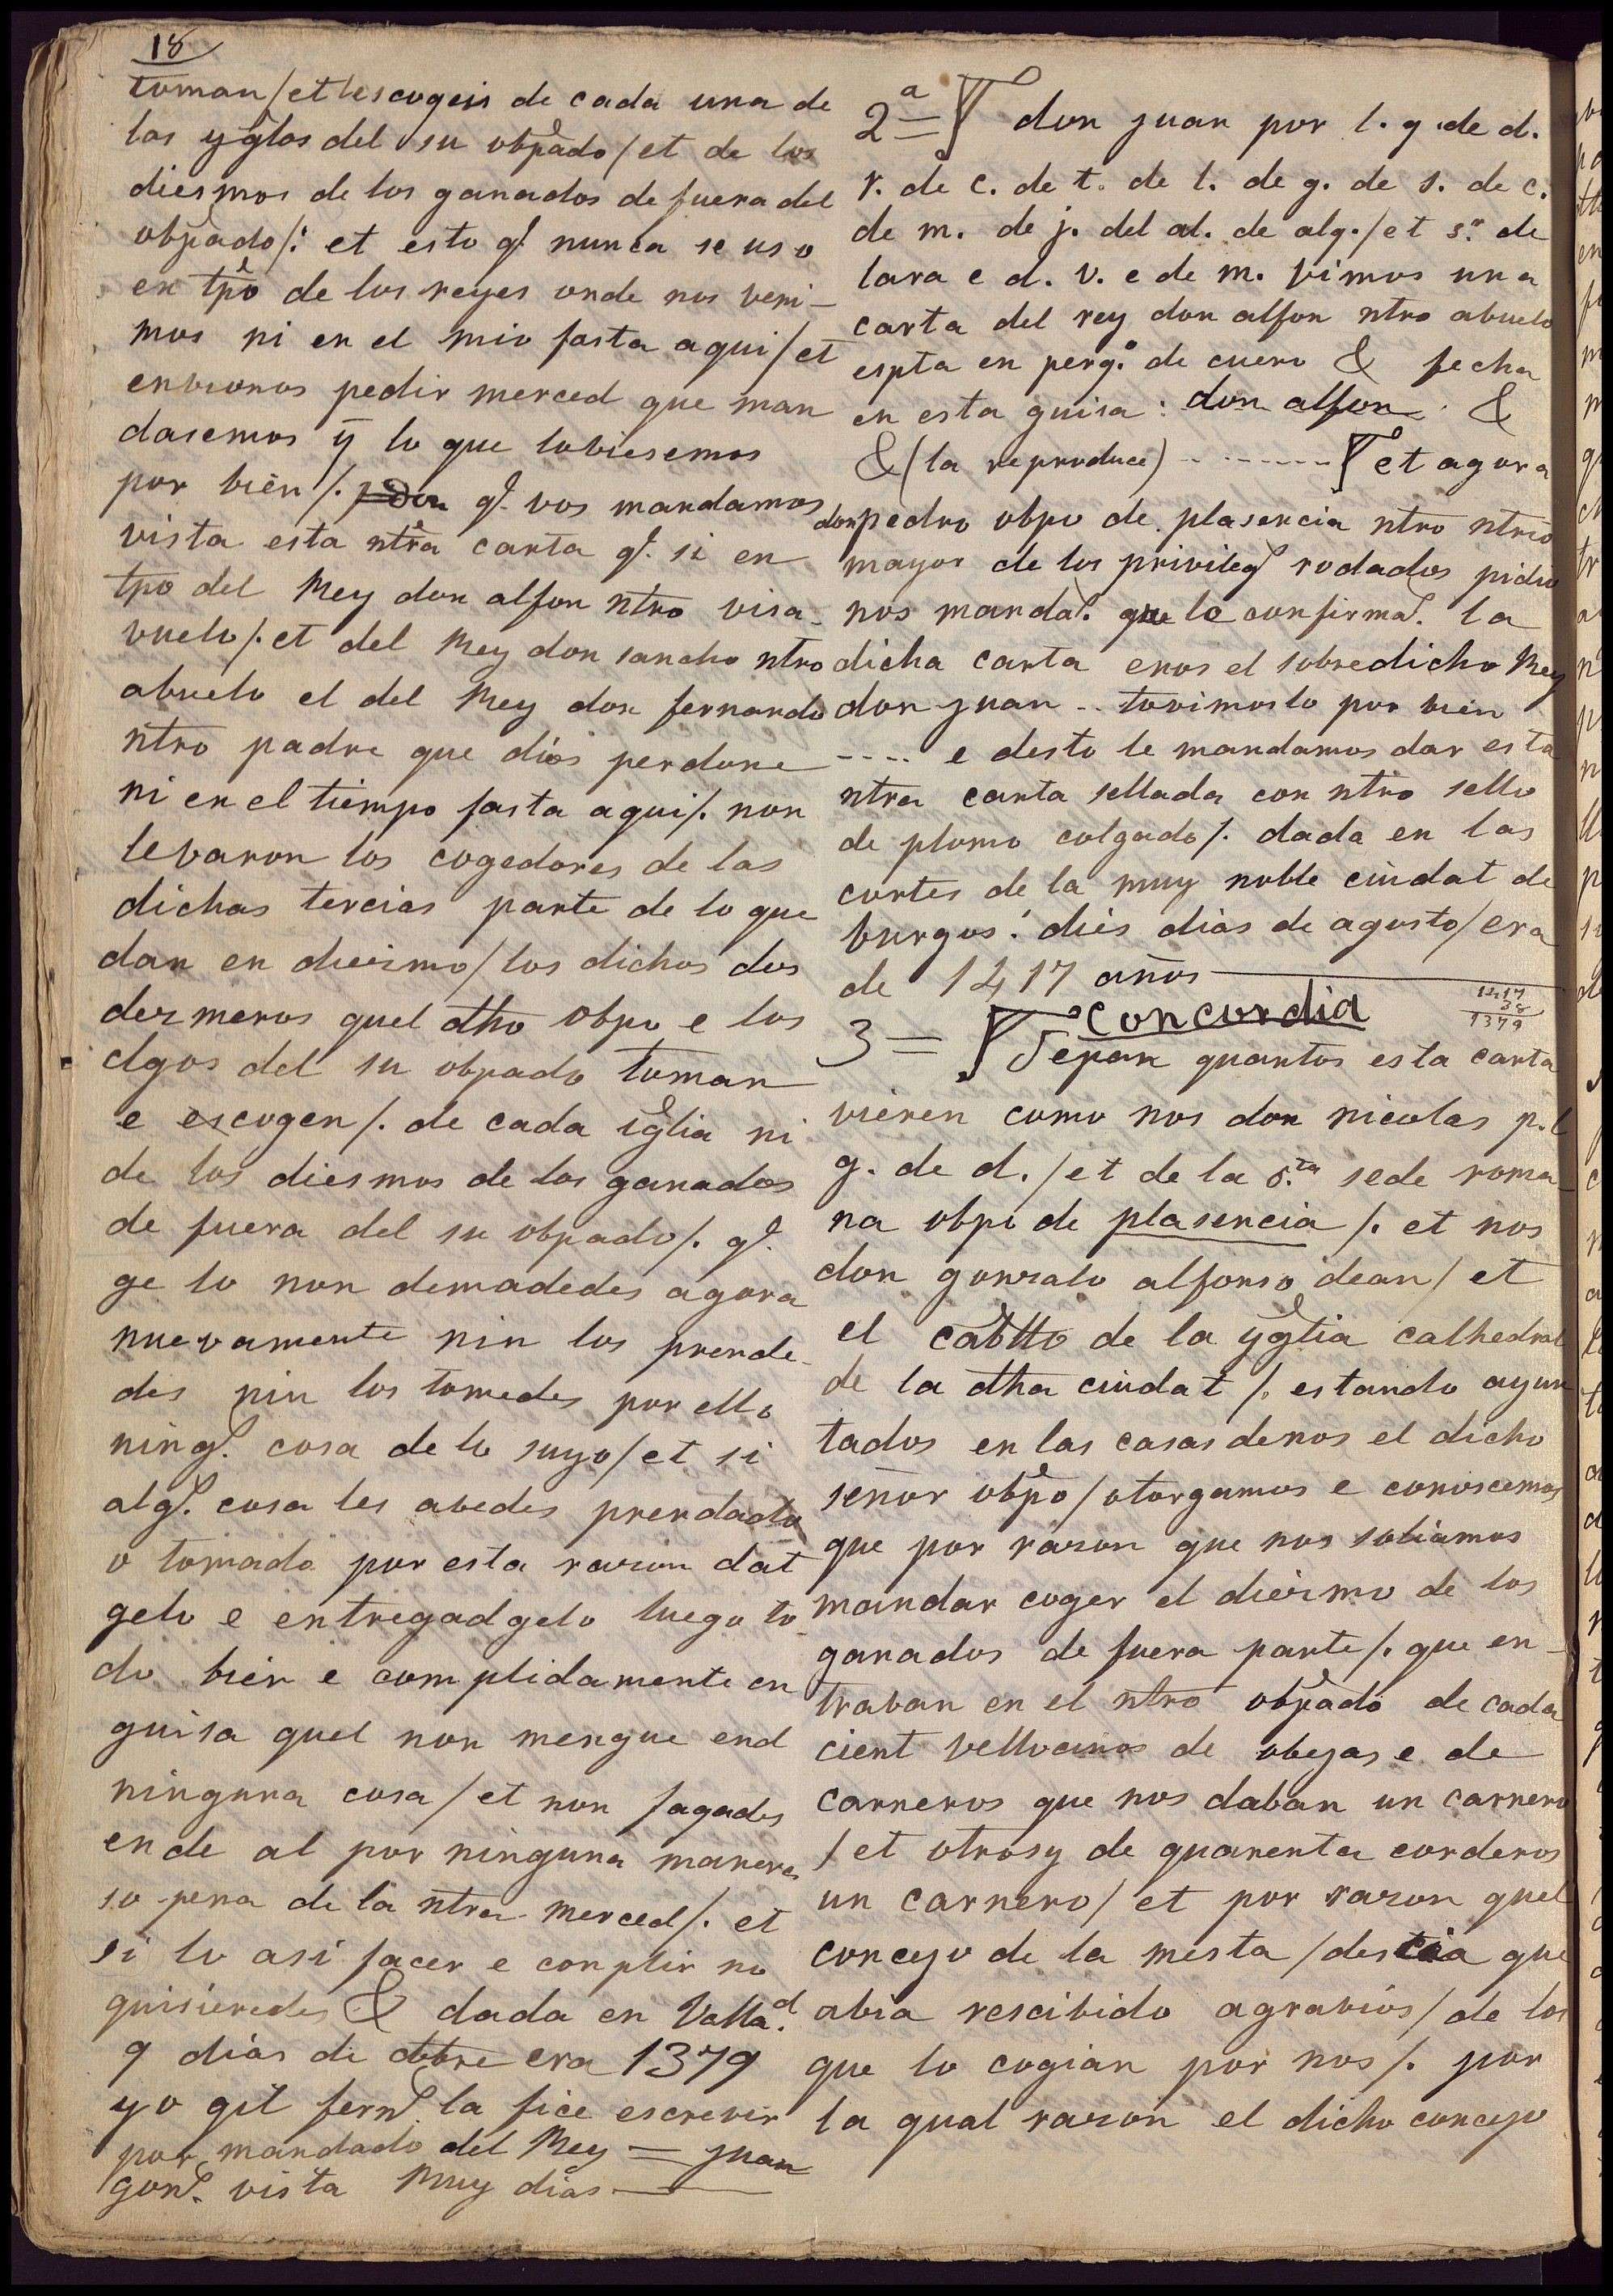 18
toman / et les cogeis de cada una de
las yglas del su obpado / et de los
diesmos de los ganados de fuera del
obpado /: et esto q. nunca se uso
en tpo de los reyes onde nos veni-
mos ni en el mio fasta aqui / et
envionos pedir merced que man
dasemos y lo que tobiesemos
por bien /. q. vos mandamos
vista esta ntra carta q. si en
tpo del Rey don alfon ntro visa-
vuelo /. et del Rey don sancho ntro
abuelo el del Rey don fernando
ntro padre que dios perdone
ni en el tiempo fasta aqui /. non
levaron los cogedores de las
dichas tercias parte de lo que
dan en diezmo / los dichos dos
dezmeros quel dho obpo e los
clgos del su obpado toman
e escogen /. de cada iglia ni
de los diesmos de los ganados
de fuera del su obpado /. q.
ge lo non demadedes agora
nuevamente nin los prende-
des nin los tomedes por ello
ning. cosa de lo suyo / et si
alg. cosa les abedes prendado
o tomado por esta razon dat
gelo e entregadgelo luego to-
do bien e complidamente en
guisa quel non mengue end
ninguna cosa / et non fagades
ende al por ninguna manera
so pena de la ntra merced /. et
si lo asi facer e conplir no
quisieredes & dada en Vallad.
9 dias de otbre era 1379
yo gil fern. la fice escrevir
por mandado del Rey = juan
gon. vista Ruy dias
2a = don juan por l. g. de d.
r. de c. de t. de l. de g. de s. de c.
de m. de j. del al. de alg. / et sr. de
lara e d. v. e de m. vimos una
carta del rey don alfon ntro abuelo
espta en perg.o de cuero & fecha
en esta guisa : don alfon . &
& (la reproduce) - - - - - - - et agora
don pedro obpo de plasencia ntro ntrio
mayor de los privileg rodados pidio
nos manda. que le confirma. la
dicha carta enos el sobredicho Rey
don juan .. tovimoslo por bien
---- e desto le mandamos dar esta
ntra carta sellada con ntro sello
de plomo colgado /. dada en las
cortes de la muy noble ciudat de
burgos : dies dias de agosto / era
de 1417 años
1417
38
1379
3 = concordia
Sepan quantos esta carta
vieren como nos don nicolas p. l
g. de d. / et de la s.ta sede roma-
na obpo de plasencia /. et nos
don gonzalo alfonso dean / et
el cabtto de la yglia cathedral
de la dha ciudat /. estando ayun
tados en las casas de nos el dicho
señor obpo / otorgamos e conoscemos
que por razon que nos soliamos
mandar coger el diezmo de los
ganados de fuera parte /. que en-
traban en el ntro obpado de cada
cient vellocinos de obejas e de
carneros que nos daban un carnero
/ et otrosy de quarenta corderos
un carnero / et por razon quel
concejo de la mesta / descia que
abia rescibido agrabios / de los
que lo cogian por nos /. por
la qual razon el dicho concejo